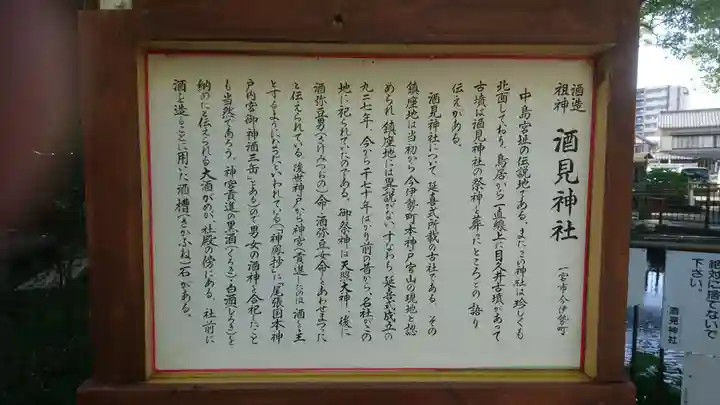 酒造
祖神
酒見神社
一宮市今伊勢町
中島宮址の伝説地である。またこの神社は珍しくも
北面しており、鳥居から一直線上に目久井古墳があって
古墳は酒見神社の祭神を葬ったところとの語り
伝えがある。
酒見神社について、延喜式所載の古社である。その
鎮座地は当初から今伊勢町本神戸宮山の現地と認
められ、鎮座地には異説がない。すなわち延喜式成立の
九二七年、今から千七十年ばかり前の昔から、名社がこの
地に祀られていたのである。御祭神は天照大神、後に
酒弥豆男(さけみつおの)命・酒弥豆女命をあわせまつった
と伝えられている。後世神戸から神宮へ貢進したのは酒を主
とするようになったといわれている。「神鳳抄」に「尾張国本神
戸内宮御神酒三缶」とあるので男女の酒神を合祀したこと
も当然であろう。神宮貢進の黒酒(くろき)白酒(しろき)を
納めたと伝えられる大酒がめが、社殿の傍にある。社前に
酒を造ることに用いた酒槽(さかふね)石がある。
絶対に捨てないで
下さい。
酒見神社